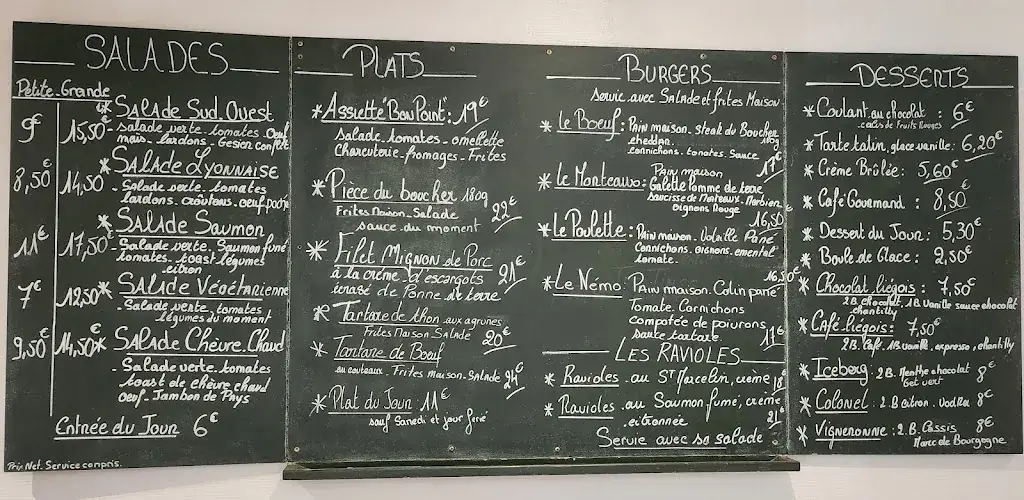 SALADES
Petite - Grande
9€ 15,50€ * Salade Sud. Ouest
- salade verte. tomates. Oeuf
maïs. lardons. Gésier confit
8,50€ 14,50 * Salade Lyonnaise
- Salade verte. tomates
lardons. croûtons. oeuf poché
11€ 17,50 * Salade Saumon
- Salade verte. Saumon fumé
tomates. toast légumes
citron
7€ 12,50 * Salade Végétarienne
- Salade verte. tomates
légumes du moment
9,50€ 14,50€ * Salade Chèvre. Chaud
- Salade verte. tomates
toast de chèvre chaud
Oeuf. Jambon de Pays
Entrée du Jour 6€
Prix Net. Service compris.
PLATS
* Assiette "Bon Point": 19€
Salade. tomates - omelette
Charcuterie. fromages. Frites
* Piece du boucher 180g
Frites Maison. Salade 22€
sauce du moment
* Filet Mignon de Porc
à la crème d'escargots 21€
écrasé de Pomme de terre
* Tartare de thon aux agrumes
Frites Maison. Salade 20€
* Tartare de Boeuf
au couteaux. Frites maison. Salade 24€
* Plat du Jour 11€
sauf Samedi et jour férié
BURGERS
servie avec Salade et frites Maison
* Le Boeuf: Pain maison. steak du Boucher
180g
cheddar.
cornichons. tomates. Sauce
17€
* Le Morteaux: Pain maison
Galette Pomme de terre
saucisse de Morteaux. Morbier
oignons Rouge
16,50
* Le Poulette: Pain maison. Volaille Pané
Cornichons. oignons. emental
tomate.
16,50€
* Le Némo: Pain maison. Colin pané
Tomate. Cornichons
compotée de poivrons
sauce tartare. 17€
LES RAVIOLES
* Ravioles. au St Marcelin, crème 18€
* Ravioles. au Saumon fumé, crème
citronnée 21€
Servie avec sa salade
DESSERTS
* Coulant au chocolat : 6€
coulis de fruits Rouges
* Tarte tatin, glace vanille: 6,20€
* Crème Brûlée: 5,60€
* Café Gourmand : 8,50€
* Dessert du Jour: 5,30€
* Boule de Glace: 2,50€
* Chocolat liégois: 7,50€
2B. Chocolat, 1B Vanille sauce chocolat
chantilly
* Café liegois: 7,50€
2B. Café. 1B vanille, expresso, chantilly
* Iceberg : 2B. Menthe chocolat 8€
Get vert
* Colonel : 2.B Citron. Vodka 8€
* Vigneronne : 2.B. Cassis 8€
Marc de Bourgogne